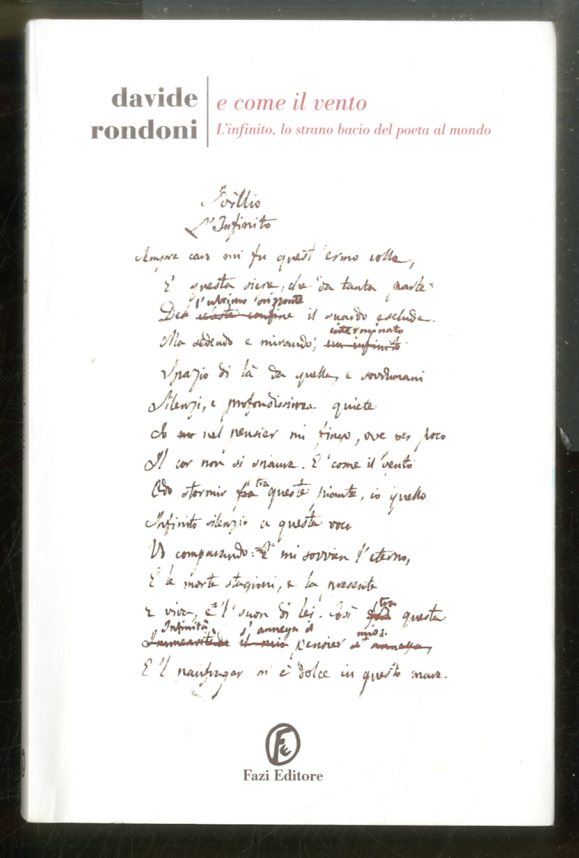 davide
rondoni
e come il vento
L'infinito, lo strano bacio del poeta al mondo
Idillio
L'Infinito
Sempre caro mi fu quest'ermo colle,
E questa siepe, che da tanta parte
l'ultimo orizzonte
Del celeste confine il guardo esclude.
interminato
Ma sedendo e mirando, un infinito
Spazio di là da quella, e sovrumani
Silenzi, e profondissima quiete
Io nel pensier mi fingo, ove per poco
Il cor non si spaura. E come il vento
tra
Odo stormir fra queste piante, io quello
Infinito silenzio a questa voce
Vo comparando: E mi sovvien l'eterno,
E le morte stagioni, e la presente
tra
E viva, e 'l suon di lei. Così fra questa
Infinità s'annega il mio
Immensitade il mio pensier s'annega,
E 'l naufragar m'è dolce in questo mare.
Fazi Editore